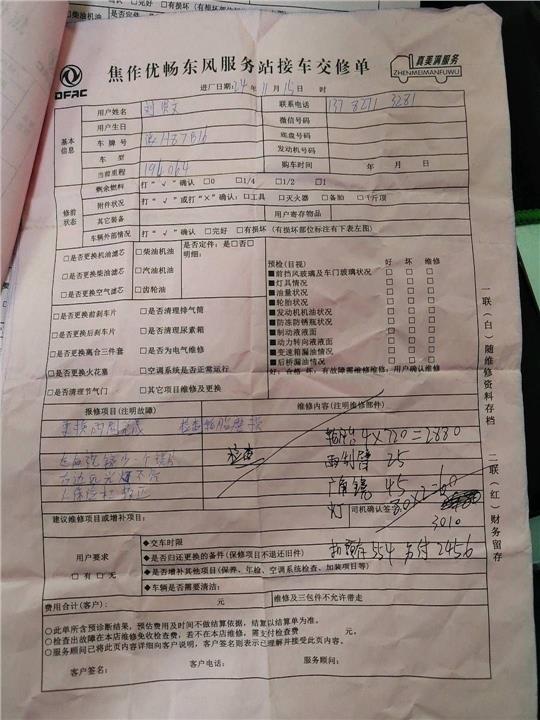 DFAC
焦作优畅东风服务站接车交修单
真美满服务
ZHENMEIMANFUWU
进厂日期:24年 11月 15日 时
基本信息
用户姓名 刘 文
联系电话 137 8271 3281
用户生日
微信号码
车牌号 H87B16
底盘号码
车型
发动机号码
当前里程 196064
购车时间 年 月 日
修前状态
剩余燃料 打“√”确认 □0 □1/4 □1/2 □1
附件状况 打“√”或打“×”确认:□工具 □灭火器 □备胎 □千斤顶
其它装备
用户寄存物品
车辆外部情况 打“√”确认 □完好 □有损坏(有损坏部位标注有下表左图)
□是否更换机油滤芯 □柴油机油 是否定件:是□否□
明细:
□是否更换柴油滤芯 □汽油机油
□是否更换空气滤芯 □齿轮油
□是否更换前刹车片 □是否清理排气筒
□是否更换后刹车片 □是否清理尿素箱
□是否更换离合三件套 □是否为电气维修
□是否更换火花塞 □空调系统是否正常运行
□是否清理节气门 □其它项目维修及更换
预检(目视) 好 坏 维修
■前挡风玻璃及车门玻璃状况 □ □ □
■灯具情况 □ □ □
■油量状况 □ □ □
■轮胎状况 □ □ □
■发动机机油状况 □ □ □
■防冻防锈瓶状况 □ □ □
■制动液液面 □ □ □
■动力转向液液面 □ □ □
■变速箱漏油情况 □ □ □
■后桥漏油情况 □ □ □
好:合格,坏:有故障需维修检修;用户确认维修
报修项目(注明故障)
维修内容(注明维修部件)
检查轮胎磨损
检查
轮胎 4×720=2880
雨刮臂 25
广角镜 45
灯
司机确认签
3010
建议维修项目或增补项目:
用户要求
□有 □无
◆交车时限
◆是否归还更换的备件(保修项目不退还旧件)
◆是否增补其他项目(保养、年检、空调系统检查、加装项目等)
◆车辆是否需要清洁:
554 另付 2456
费用合计(客户): 元 维修及三包件不允许带走
○此单所含预诊断结果,预估费用及时间不做结算依据,结复以结算单为准。
○检查出故障在本店维修免收检查费,若不在本店维修,需支付检查费 元。
○服务顾问已将此页内容详细向客户说明,客户签名则表示已理解并接受此页内容。
客户签名: 客户电话: 服务顾问:
一联(白)随维修资料存档
二联(红)财务留存